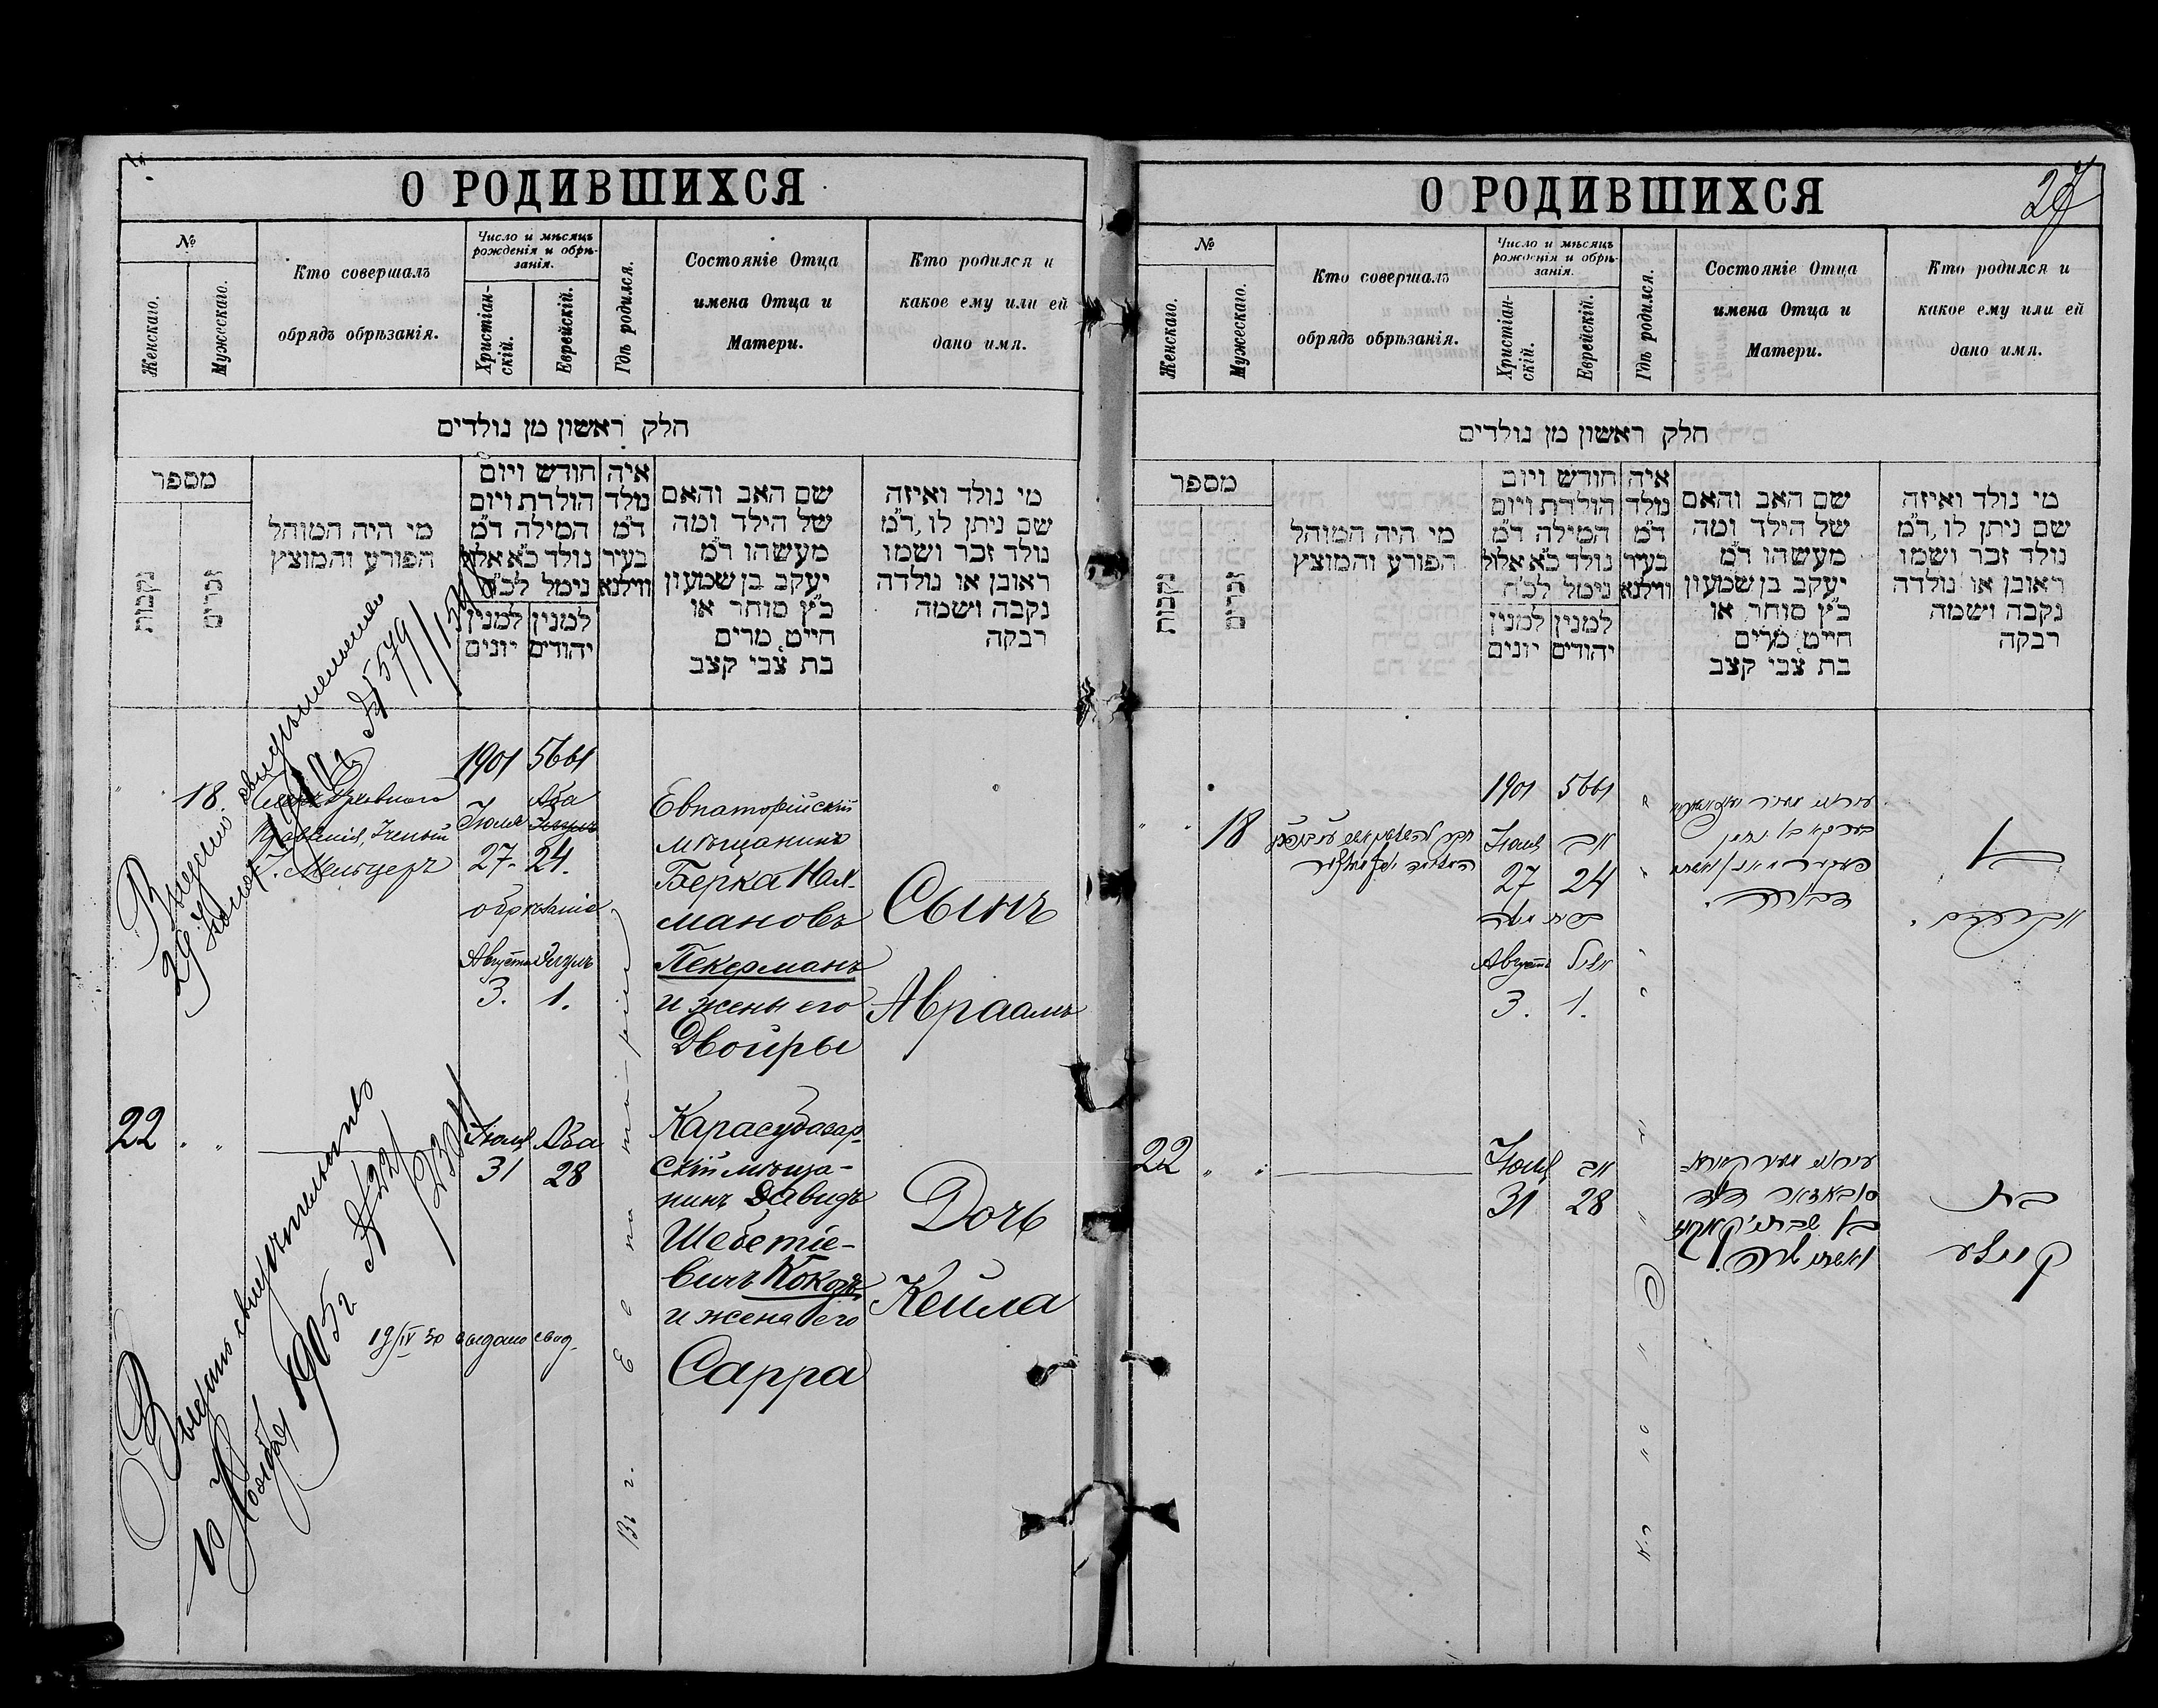 О РОДИВШИХСЯ
№
Женскаго.
Мужескаго.
Кто совершалъ
обрядъ обрѣзанія.
Число и мѣсяцъ
рожденія и обрѣ-
занія.
Христіан-
скій.
Еврейскій.
Гдѣ родился.
Состояніе Отца
имена Отца и
Матери.
Кто родился и
какое ему или ей
дано имя.
חלק ראשון מן נולדים
מספר
נקבות
זכרים
מי היה המוהל
הפורע והמוצץ
חודש ויום
הולדת ויום
המילה ד״מ
נולד כ״א אלול
נימל לכ״ח
למנין
יונים
למנין
יהודים
איה
נולד
ד״מ
בעיר
ווילנא
שם האב והאם
של הילד ומה
מעשהו ד״מ
יעקב בן שמעון
כ״ץ סוחר או
חייט מרים
בת צבי קצב
מי נולד ואיזה
שם ניתן לו, ד״מ
נולד זכר ושמו
ראובן או נולדה
נקבה ושמה
רבקה
18.
Мельцеръ
1901 5661
Іюля Аба
27. 24.
обрѣзаніе
Августа Элулъ
3. 1.
Евпаторійскій
мѣщанинъ
Берка Нах-
мановъ
Пекерманъ
и жены его
Двойры
Сынъ
Авраамъ
Выдано свидѣтельство
№ 579
22 " "
Іюля Аба
31 28
Карасубазар-
скій мѣща-
нинъ Давидъ
Шебетіе-
вичъ Кокозъ
и жена его
Сарра
Дочь
Кейла
Выдано свидѣтельство
10 Ноября 1905 г.
19/IV 30 выдано свид.
Въ г. Евпаторіи
О РОДИВШИХСЯ
27
№
Женскаго.
Мужескаго.
Кто совершалъ
обрядъ обрѣзанія.
Число и мѣсяцъ
рожденія и обрѣ-
занія.
Христіан-
скій.
Еврейскій.
Гдѣ родился.
Состояніе Отца
имена Отца и
Матери.
Кто родился и
какое ему или ей
дано имя.
חלק ראשון מן נולדים
מספר
נקבות
זכרים
מי היה המוהל
הפורע והמוצץ
חודש ויום
הולדת ויום
המילה ד״מ
נולד כ״א אלול
נימל לכ״ח
למנין
יונים
למנין
יהודים
איה
נולד
ד״מ
בעיר
ווילנא
שם האב והאם
של הילד ומה
מעשהו ד״מ
יעקב בן שמעון
כ״ץ סוחר או
חייט מרים
בת צבי קצב
מי נולד ואיזה
שם ניתן לו, ד״מ
נולד זכר ושמו
ראובן או נולדה
נקבה ושמה
רבקה
" " 18
1901 5661
Іюля אב
27 24
Августа אלול
3. 1.
בן
אברהם
22 " "
Іюля אב
31 28
בת
קיילע